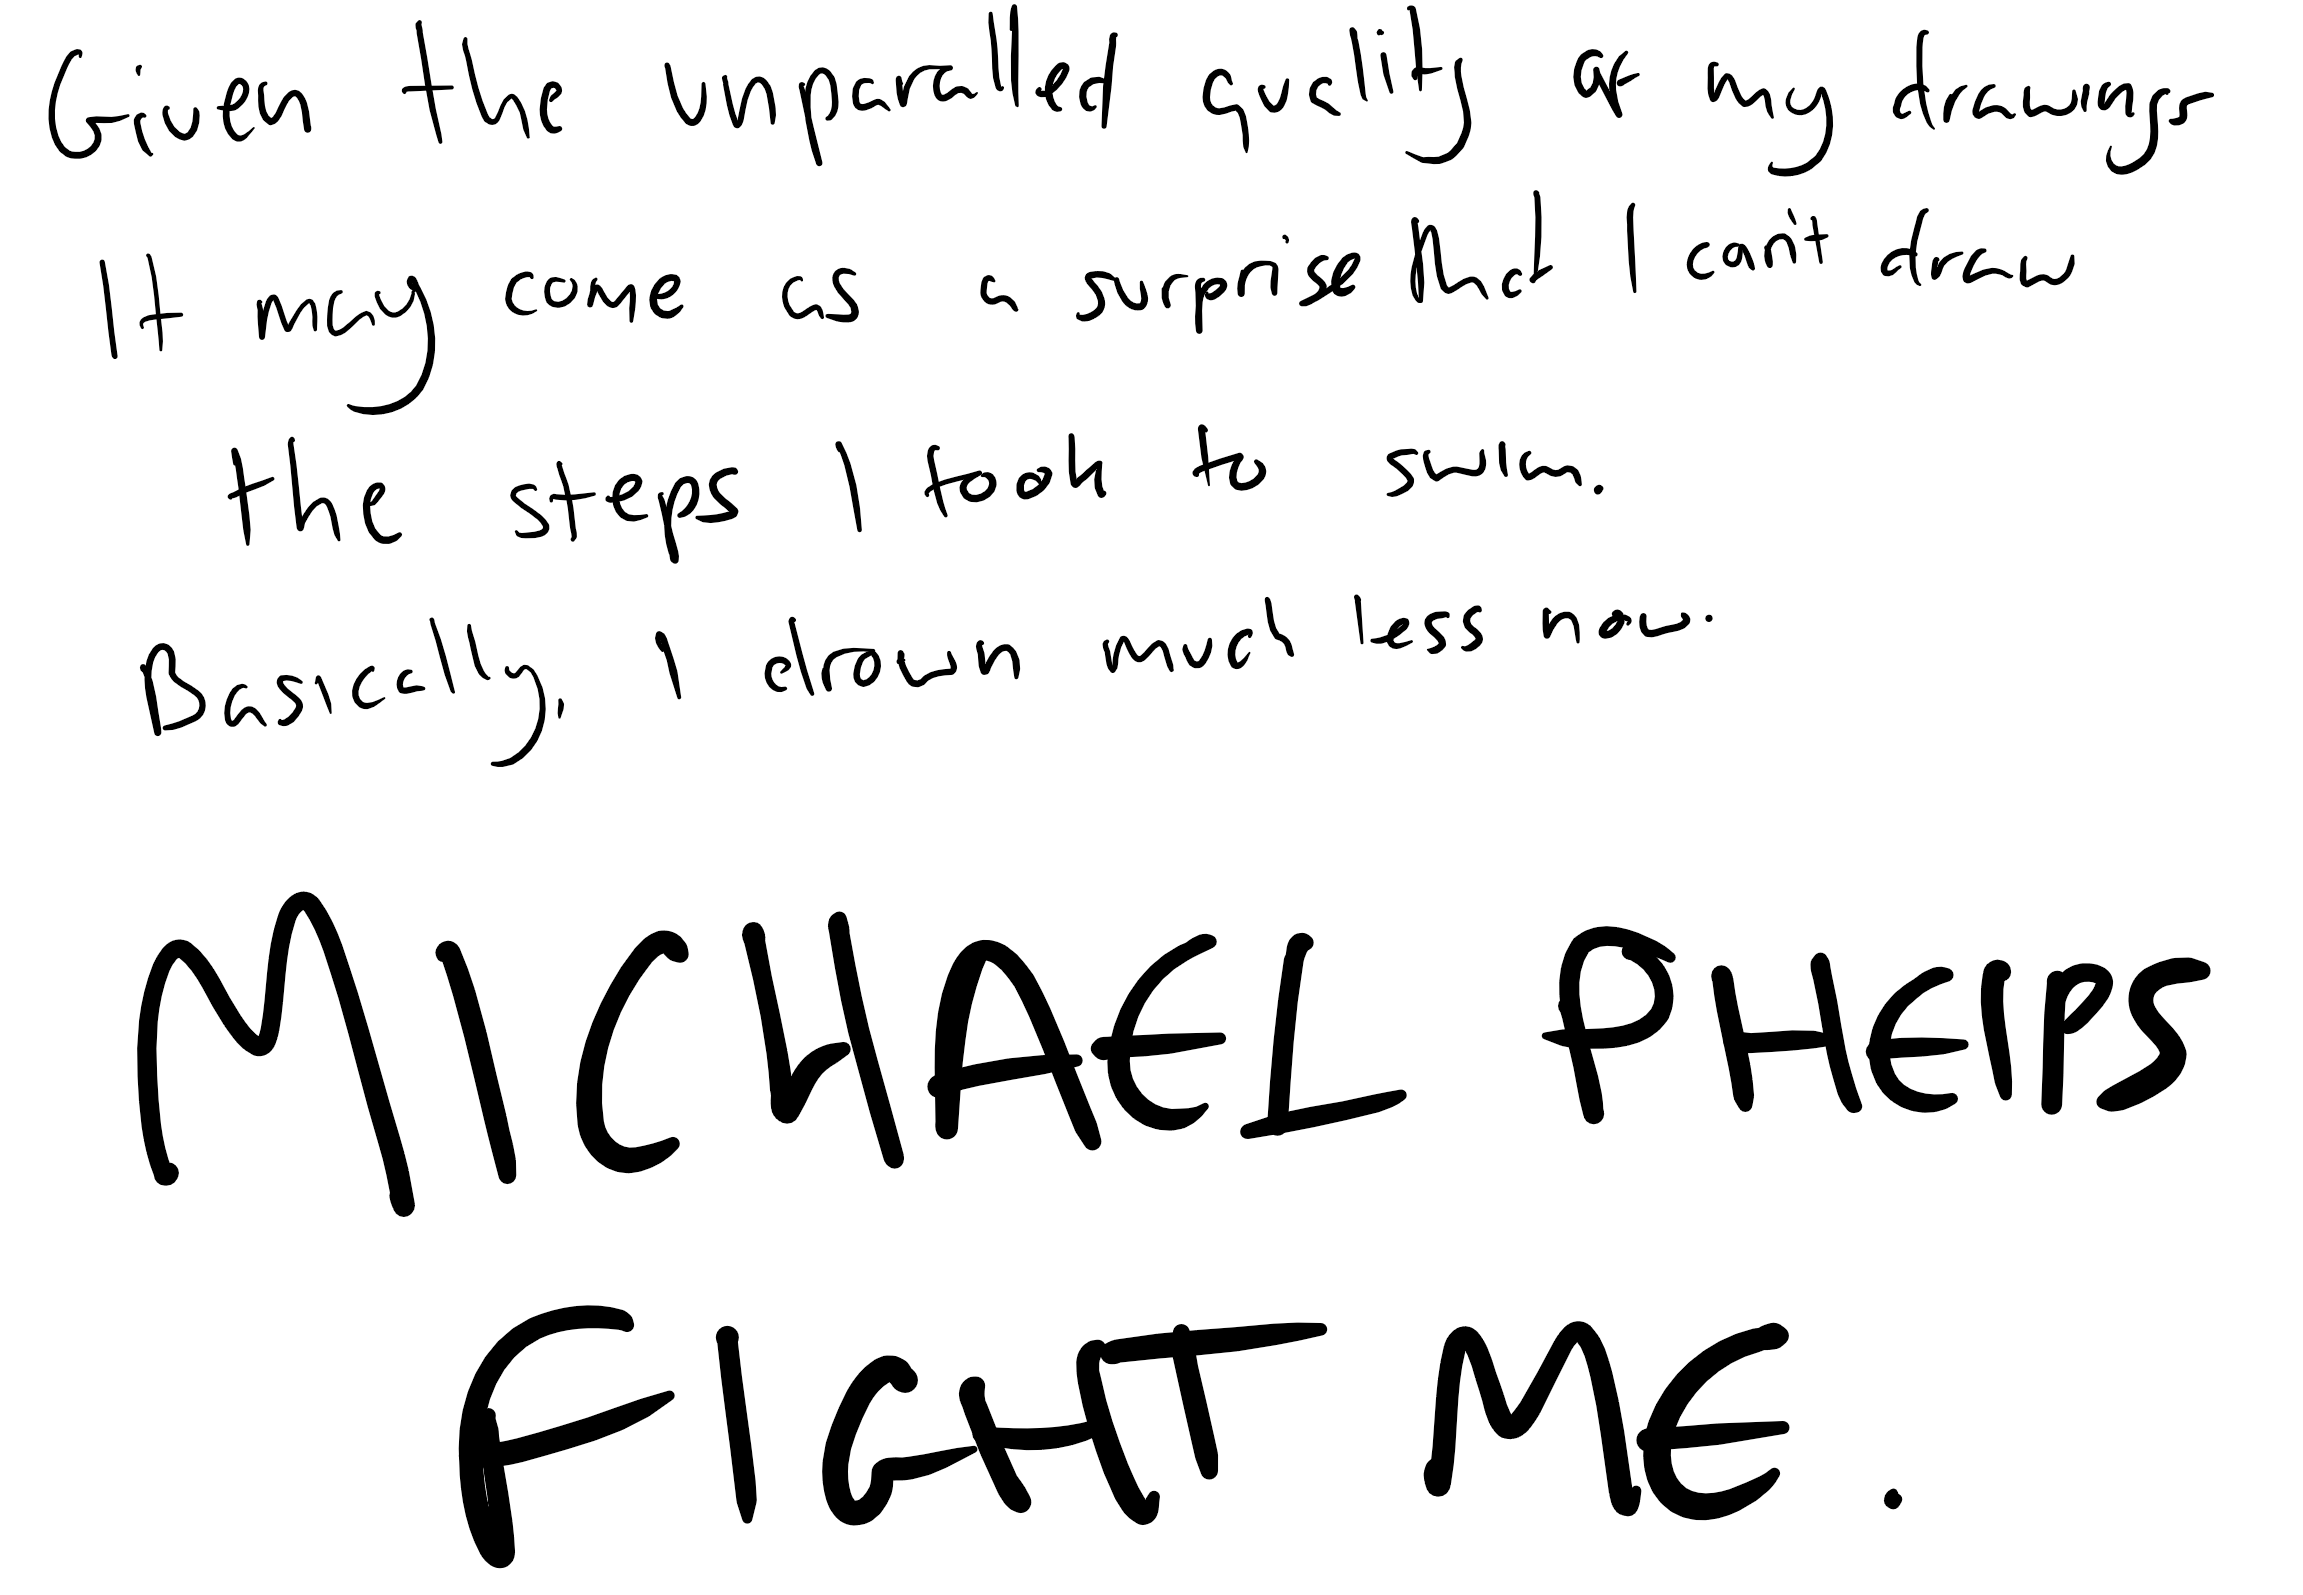 Given the unparalled quality of my drawings
It may come as a surprise that I can't draw
the steps I took to swim.
Bassically, I drown much less now.
MICHAEL PHELPS
FIGHT ME.